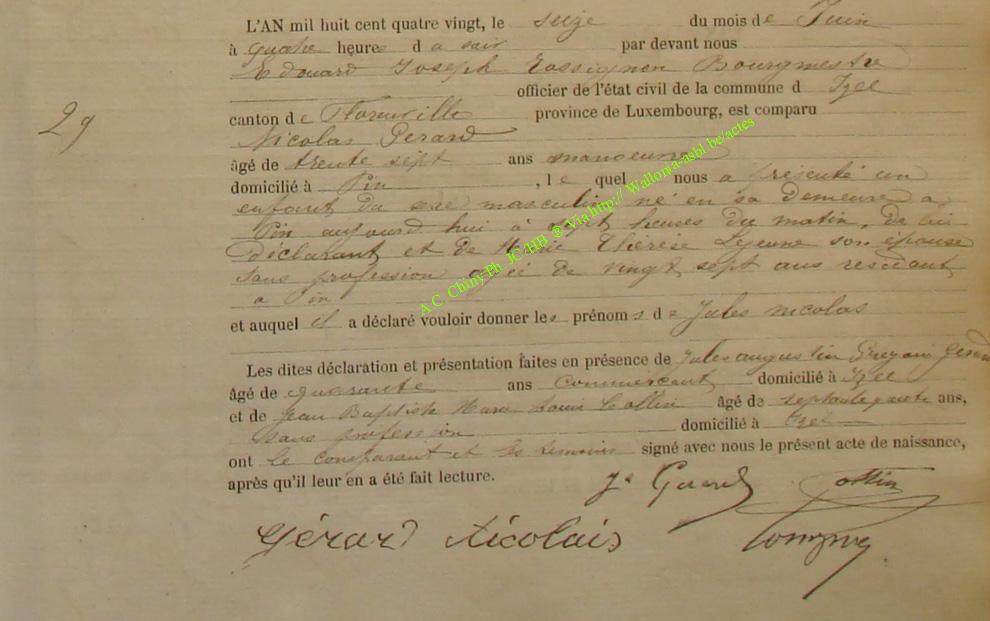 L'AN mil huit cent quatre vingt, le seize du mois de Juin
à quatre heures du soir par devant nous
Edouard Joseph Rossignon Bourgmestre
officier de l'état civil de la commune d Izel
canton de Florenville province de Luxembourg, est comparu
Nicolas Gerard
29
âgé de trente sept ans manoeuvre
domicilié à Pin , le quel nous a présenté un
enfant du sexe masculin né en sa demeure à
Pin aujourd hui à sept heures du matin, de lui
déclarant et de Marie Thérèse Lejeune son épouse
sans profession agée de vingt sept ans residant
a Pin
et auquel il a déclaré vouloir donner les prénoms de Jules nicolas
Les dites déclaration et présentation faites en présence de Jules augustin Gerard
âgé de quarante ans commercant domicilié à Izel
et de Jean Baptiste Louis Collin âgé de ans,
sans profession domicilié à Izel
ont le comparant et les temoins signé avec nous le présent acte de naissance,
après qu'il leur en a été fait lecture.
Js Gerard Collin
Gérard Nicolais
A.C. Chiny Ph JC-HB @ Via http:// Wallonia-asbl.be/actes